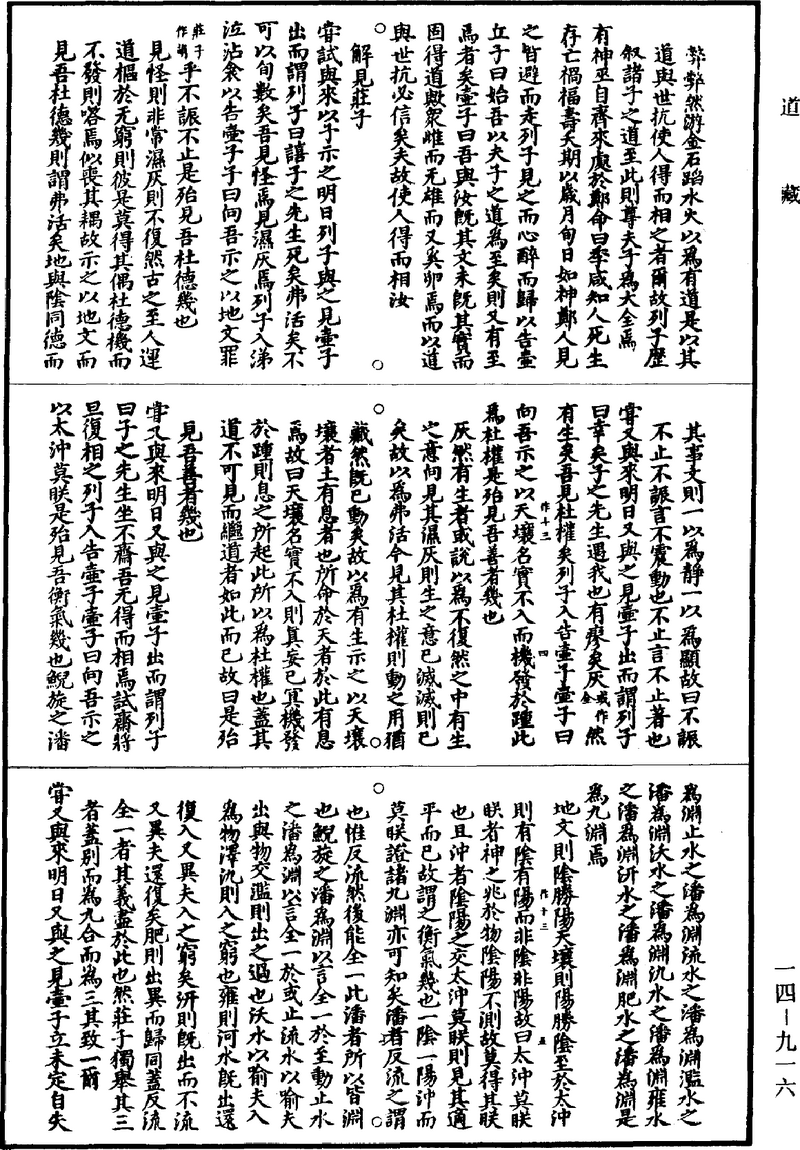 道藏
弊弊然游金石蹈水火以爲有道是以其
道與世抗使人得而相之者爾故列子歷
叙諸子之道至此則尊夫子爲大全焉
有神巫自齊來處於鄭命曰季咸知人死生
存亡禍福壽夭期以歲月旬日如神鄭人見
之皆避而走列子見之而心醉而歸以告壺
丘子曰始吾以夫子之道爲至矣則又有至
焉者矣壺子曰吾與汝既其文未既其實而
固得道歟衆雌而无雄而又奚卵焉而以道
與世抗必信矣夫故使人得而相汝
解見莊子
嘗試與來以予示之明日列子與之見壺子
出而謂列子曰譆子之先生死矣弗活矣不
可以旬數矣吾見怪焉見濕灰焉列子入涕
泣沾衾以告壺子壺子曰向吾示之以地文罪
莊子作萌乎不誫不止是殆見吾杜德幾也
見怪則非常濕灰則不復然古之至人運
道樞於无窮則彼是莫得其偶杜德機而
不發則嗒焉似喪其耦故示之以地文而
見吾杜德幾則謂弗活矣地與陰同德而
其事文則一以爲靜一以爲顯故曰不誫
不止不誫言不震動也不止言不止著也
嘗又與來明日又與之見壺子出而謂列子
曰幸矣子之先生遇我也有瘳矣灰或作全然
有生矣吾見杜權矣列子入告壺子壺子曰
向吾示之以天壤名實不入而機發於踵此
爲杜權是殆見吾善者幾也
灰然有生者或說以爲不復然之中有生
之意向見其濕灰則生之意已滅滅則已
矣故以爲弗活今見其杜權則動之用猶
藏然既已動矣故以爲有生示之以天壤
壤者土有息者也所命於天者於此有息
焉故曰天壤名實不入則真妄已冥機發
於踵則息之所起此所以爲杜權也蓋其
道不可見而繼道者如此而已故曰是殆
見吾善者幾也
嘗又與來明日又與之見壺子出而謂列子
曰子之先生坐不齋吾无得而相焉試齋將
旦復相之列子入告壺子壺子曰向吾示之
以太沖莫眹是殆見吾衡氣幾也鯢旋之潘
爲淵止水之潘爲淵流水之潘爲淵濫水之
潘爲淵沃水之潘爲淵氿水之潘爲淵雍水
之潘爲淵汧水之潘爲淵肥水之潘爲淵是
爲九淵焉
地文則陰勝陽天壤則陽勝陰至於太沖
則有陰有陽而非陰非陽故曰太沖莫眹
眹者神之兆於物陰陽不測故莫得其眹
也且沖者陰陽之交太沖莫眹則見其適
平而已故謂之衡氣幾也一陰一陽沖而
莫眹證諸九淵亦可知矣潘者反流之謂
也惟反流然後能全一此潘者所以皆淵
也鯢旋之潘爲淵以言全一於至動止水
之潘爲淵以言全一於或止流水以喻夫
出與物交濫則出之過也沃水以喻夫入
爲物澤氿則入之窮也雍則河水既出還
復入又異夫入之窮矣汧則既出而不流
又異夫還復矣肥則出異而歸同蓋反流
全一者其義盡於此也然莊子獨舉其三
者蓋別而爲九合而爲三其致一爾
嘗又與來明日又與之見壺子立未定自失
一四－九一六